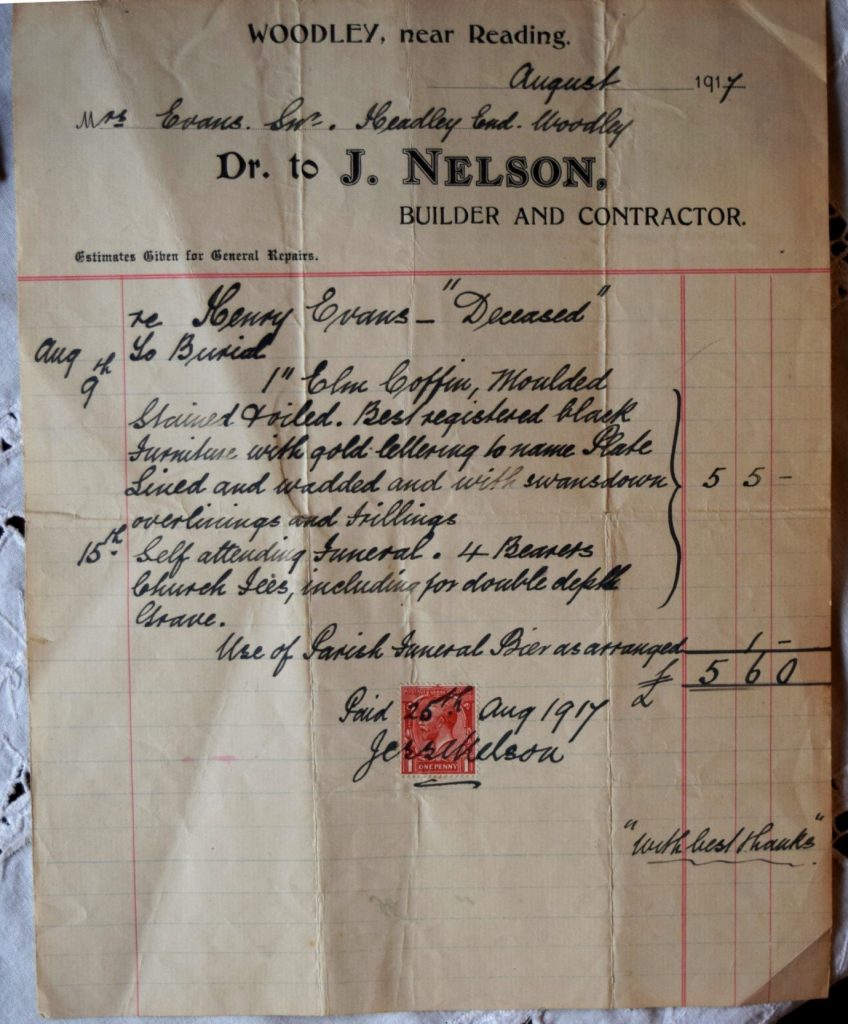 WOODLEY, near Reading.
August 1917
Mrs Evans. Snr. Headley End. Woodley
Dr. to J. NELSON,
BUILDER AND CONTRACTOR.
Estimates Given for General Repairs.
re Henry Evans - "Deceased"
Aug 9th To Burial
1" Elm Coffin, Moulded
Stained & oiled. Best registered black
Furniture with gold lettering to name Plate
Lined and wadded and with swansdown 5 5 -
overlinings and frillings
15th Self attending Funeral. 4 Bearers
Church Fees, including for double depth
Grave.
Use of Parish Funeral Bier as arranged 1 -
£ 5 6 0
Paid 25th Aug 1917
Jesse Nelson
ONE PENNY
"with best thanks"